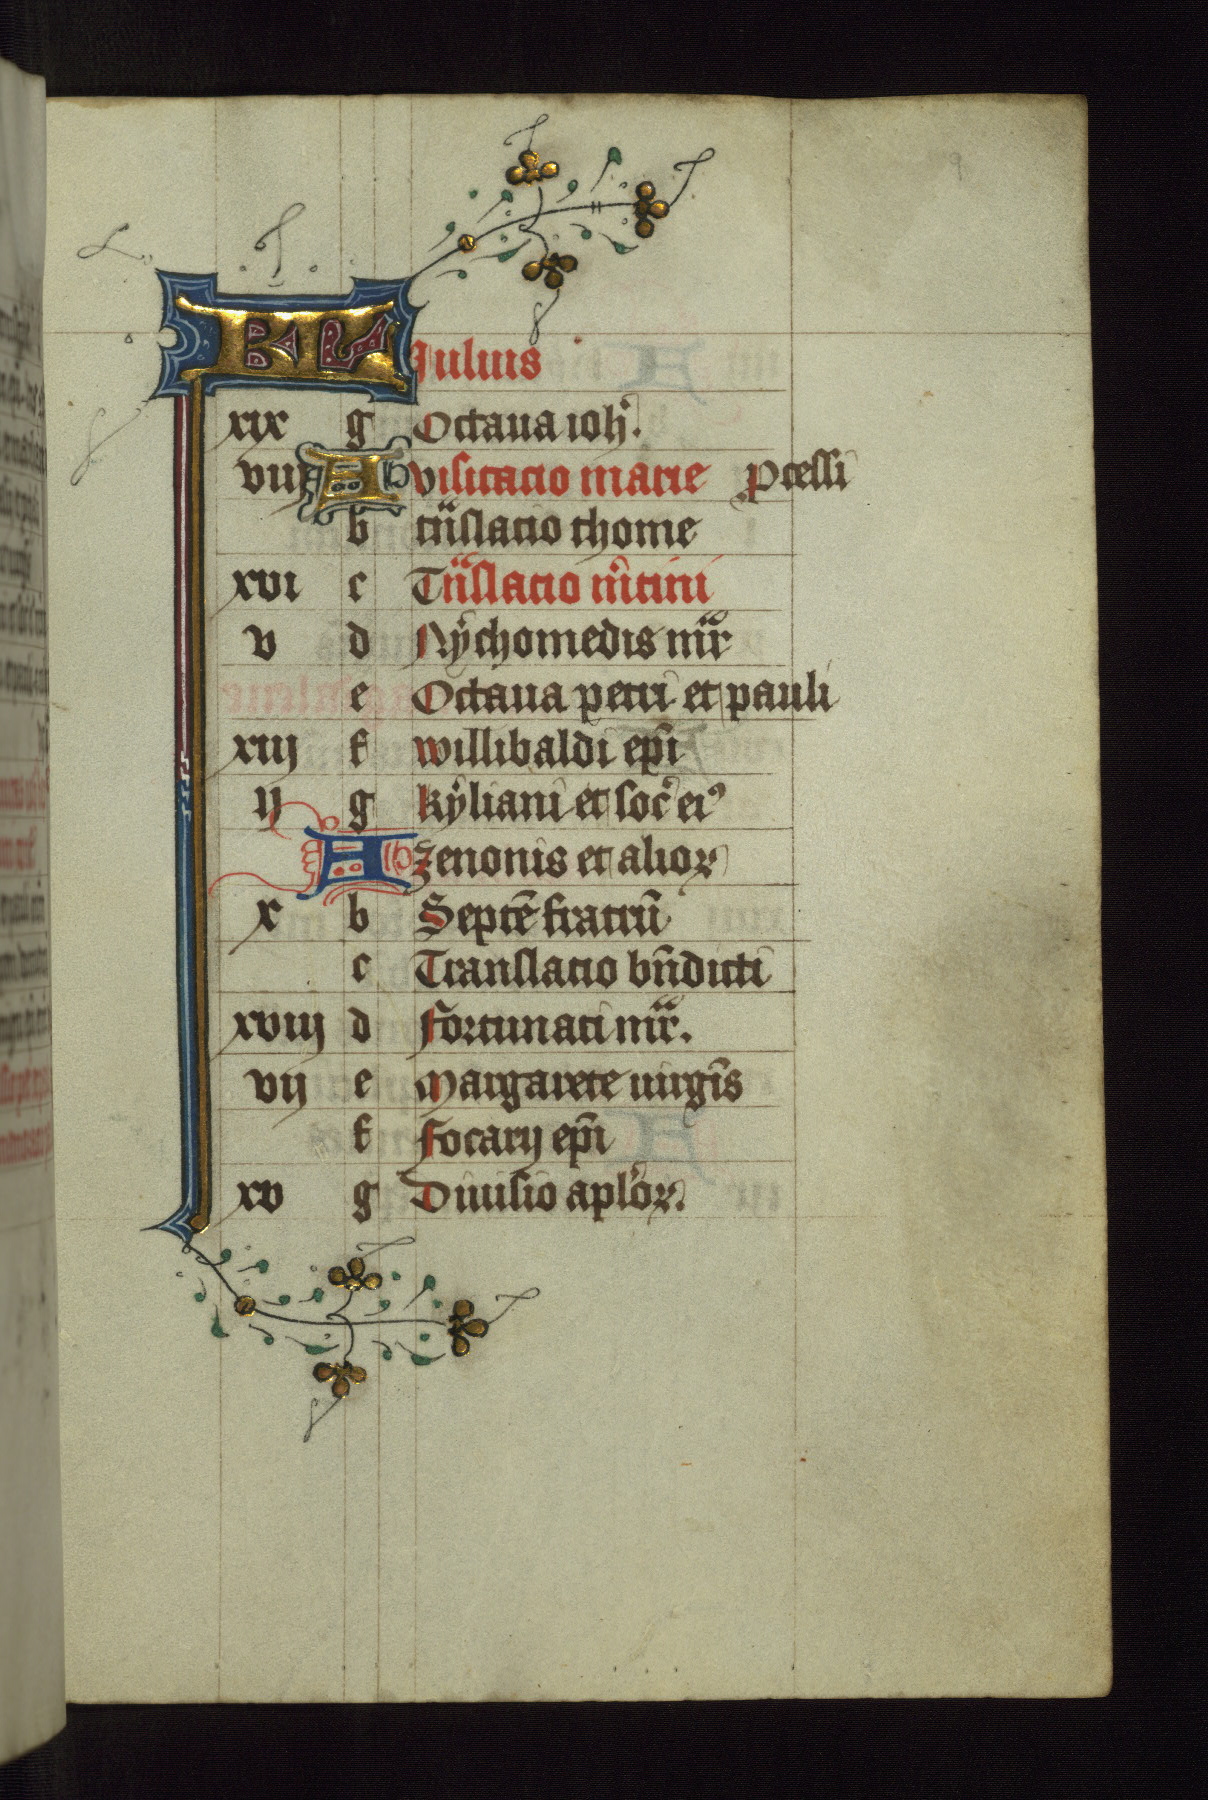 KL Julius
xix g Octaua ioh'.
viij A visitacio marie pcessi
b trāslacio thome
xvi c Trāslacio m̄rtini
v d Nychomedis mr̄
e Octaua petri et pauli
xiij f willibaldi ep̄i
ij g kyliani et soc̄ ei⁹
A zenonis et alior
x b Septē fratrū
c Translacio bn̄dicti
xviij d fortunati mr̄.
vij e Margarete uirgīs
f focarij ep̄i
xv g Diuisio apl'or.